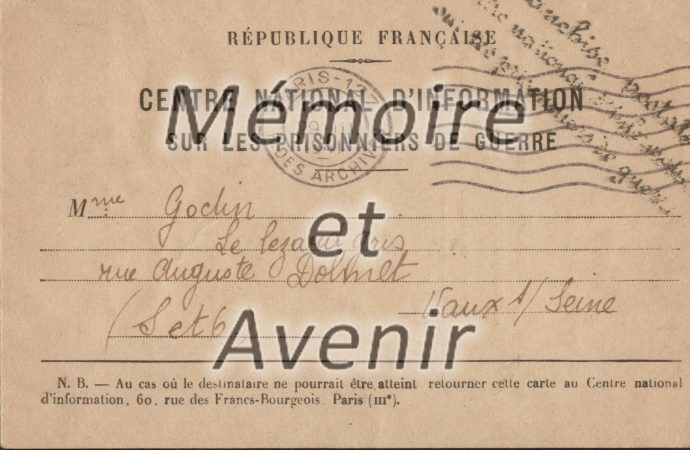 RÉPUBLIQUE FRANÇAISE
CENTRE NATIONAL D'INFORMATION
SUR LES PRISONNIERS DE GUERRE
PARIS
DES ARCHIV
Mémoire
et
Avenir
Mme Godin
Le lezard gris
rue Auguste Dolnet
(S et 6) Vaux s/ Seine
N. B. — Au cas où le destinataire ne pourrait être atteint retourner cette carte au Centre national
d'information, 60, rue des Francs-Bourgeois. Paris (IIIe).